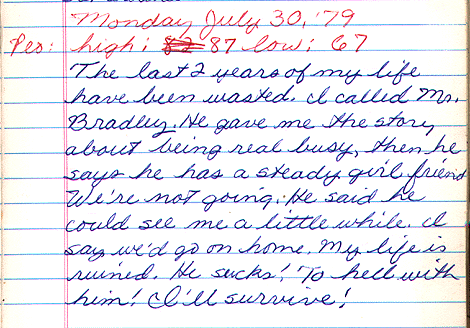 Monday July 30, '79
Peo: high: 87 low: 67
The last 2 years of my life
have been wasted. I called Mr.
Bradley. He gave me the story
about being real busy, then he
says he has a steady girl friend
We're not going. He said he
could see me a little while. I
say we'd go on home. My life is
ruined. He sucks! To hell with
him! I'll survive!